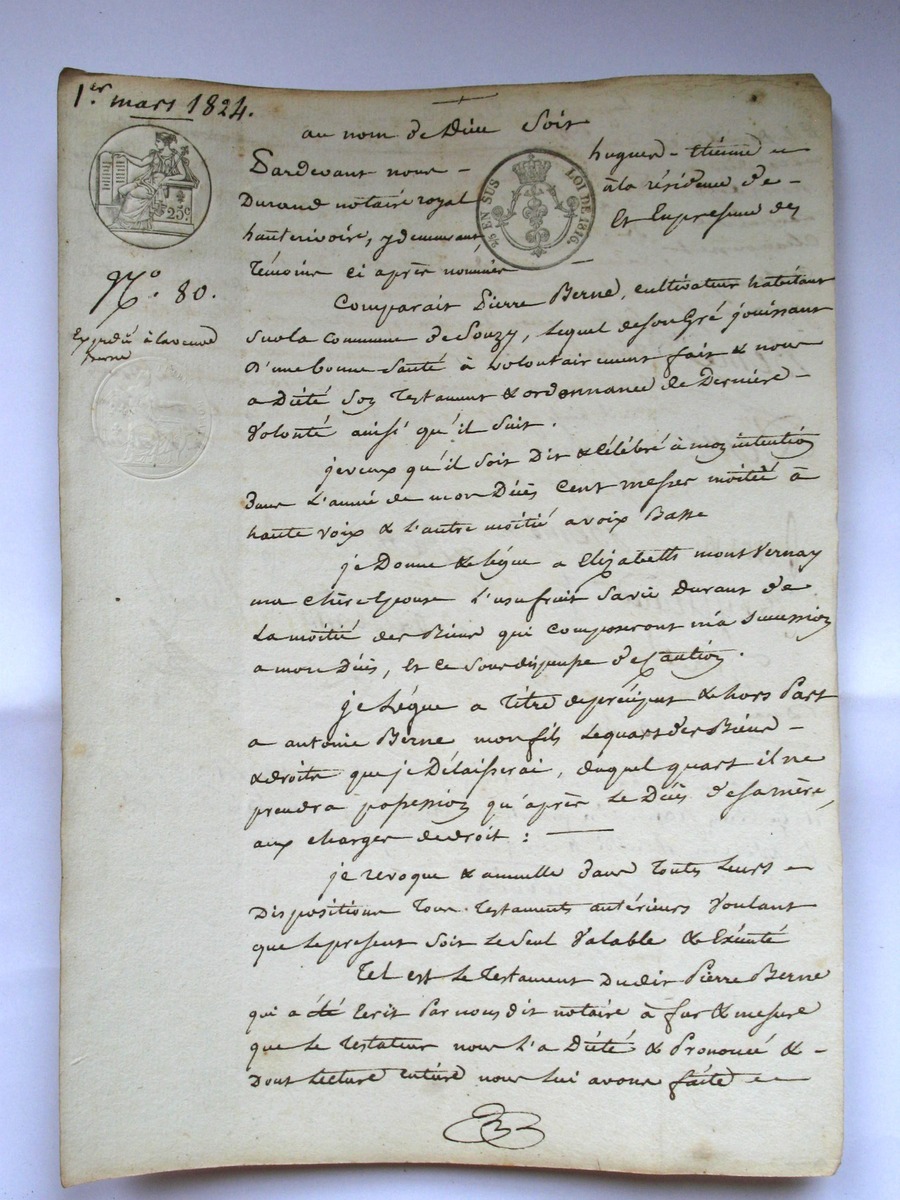 1er mars 1824.
au nom de Dieu Soit
Pardevant nous hugues-thiémé
Durand notaire royal à la résidence de
hauterivoire, y demeurant, Et En presence des
témoins ci après nommés
25c
5/10 EN SUS LOI DE 1816.
No. 80.
Expédié à la veuve
Berne
Comparait Pierre Berne, cultivateur habitant
Sur la commune de Souzy, lequel de son Gré jouissant
D'une bonne Santé à volontairement fait & nous
a Dicté Son testament & ordonnance de Dernière
Volonté ainsi qu'il Suit.
je veux qu'il soit Dit & Célébré à mon intention
Dans L'année de mon Décès Cent messes moitié à
haute voix & L'autre moitié a voix Basse
je Donne & lègue a Elizabeth mont Vernay
ma chère Epouse L'usufruit Sa vie Durant de
La moitié des Biens qui composeront ma succession
a mon Décès, Et Ce Sous dispense de Caution.
je Lègue a titre de préciput & hors Part
a antoine Berne mon fils Le quart des Biens
& droits que je Délaisserai, duquel quart il ne
prendra possession qu'après Le Décès de sa mère,
aux charges de droit :
je revoque & annulle Dans toutes Leurs
Dispositions tous testaments antérieurs Voulant
que Le present Soit Le Seul Valable & Exécuté
Tel est Le testament Dudit Pierre Berne
qui a été Ecrit Par nous dit notaire à fur & mesure
que Le testateur nous L'a Dicté & Prononcé &
Dont Lecture entière nous Lui avons faite